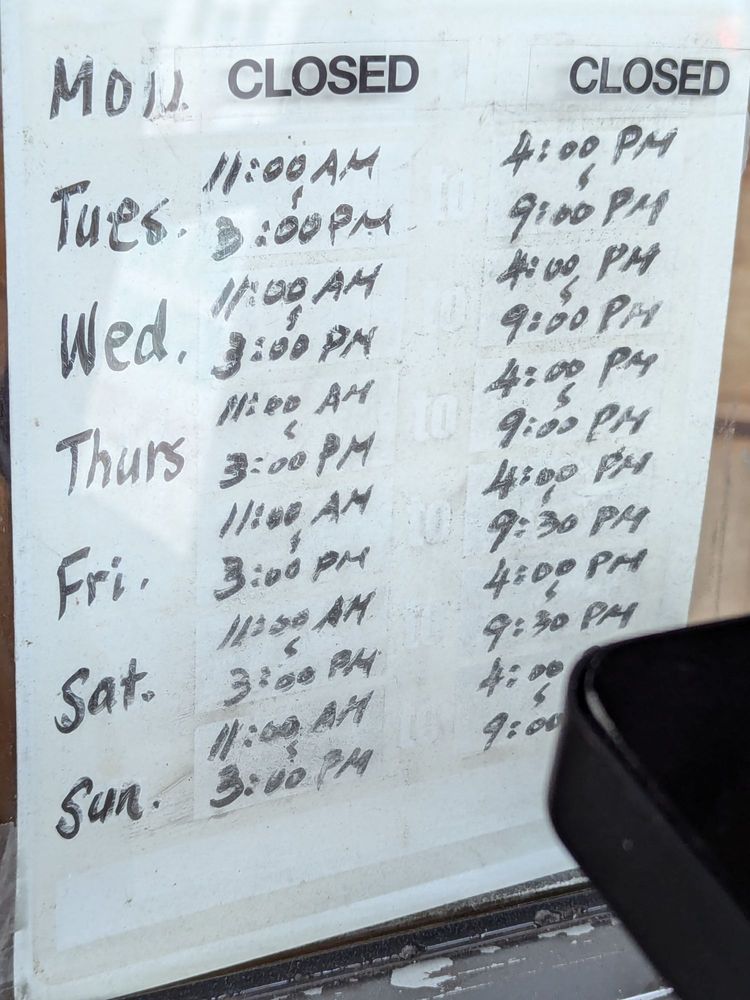 Mon. CLOSED CLOSED
11:00 AM 4:00 PM
Tues. 3:00 PM 9:00 PM
11:00 AM 4:00 PM
Wed. 3:00 PM 9:00 PM
11:00 AM 4:00 PM
Thurs 3:00 PM 9:00 PM
11:00 AM 4:00 PM
Fri. 3:00 PM 9:30 PM
11:00 AM 4:00 PM
Sat. 3:00 PM 9:30 PM
11:00 AM 4:00
Sun. 3:00 PM 9:00